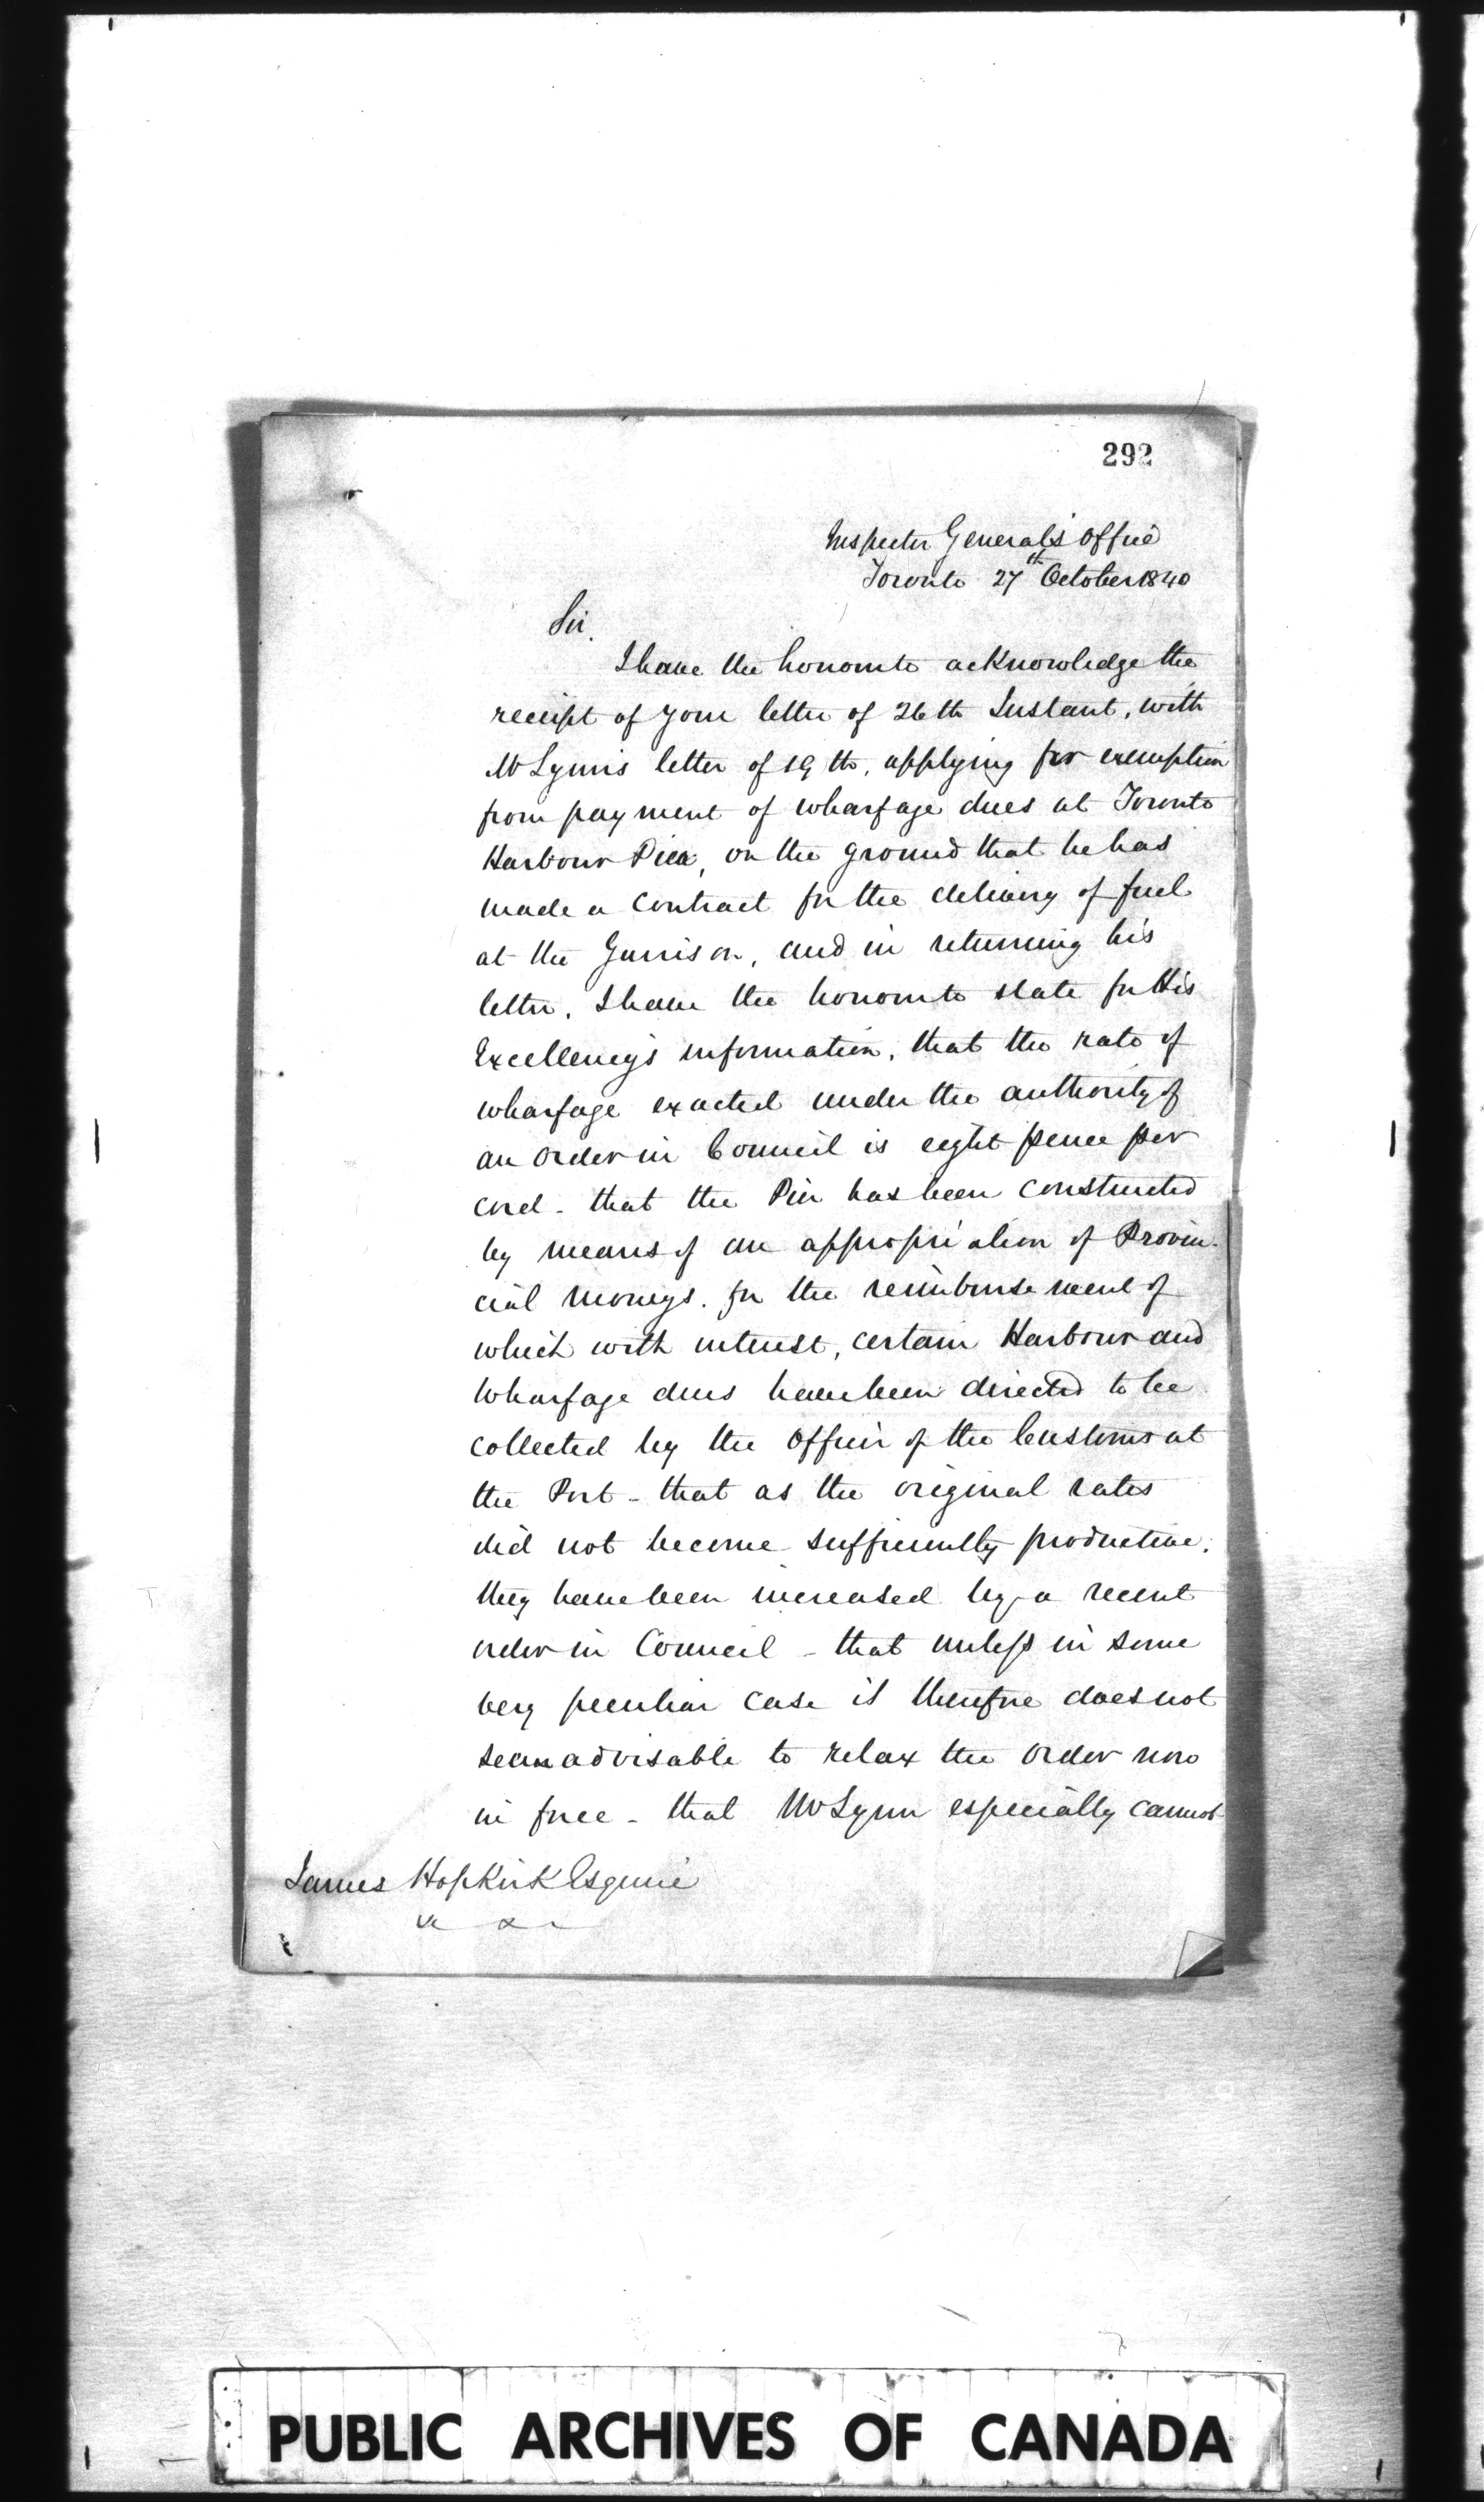 292
Inspector General's Office
Toronto 27th October 1840
Sir.
I have the honor to acknowledge the
receipt of your letter of 26th Instant, with
Mr Lynn's letter of 19th, applying for exemption
from payment of wharfage dues at Toronto
Harbour Pier, on the ground that he has
made a contract for the delivery of fuel
at the Garrison, and in returning his
letter, I have the honor to state for His
Excellency's information, that the rate of
wharfage exacted under the authority of
an Order in Council is eight pence per
cord - that the Pier has been constructed
by means of an appropriation of Provin-
cial Moneys. for the reimbursement of
which with interest, certain Harbour and
Wharfage dues have been directed to be
collected by the Officer of the Customs at
the Port - that as the original rates
did not become sufficiently productive,
they have been increased by a recent
order in Council - that unless in some
very peculiar case it therefore does not
seem advisable to relax the Order now
in force - that Mr Lynn especially cannot
James Hopkirk Esquire
PUBLIC ARCHIVES OF CANADA